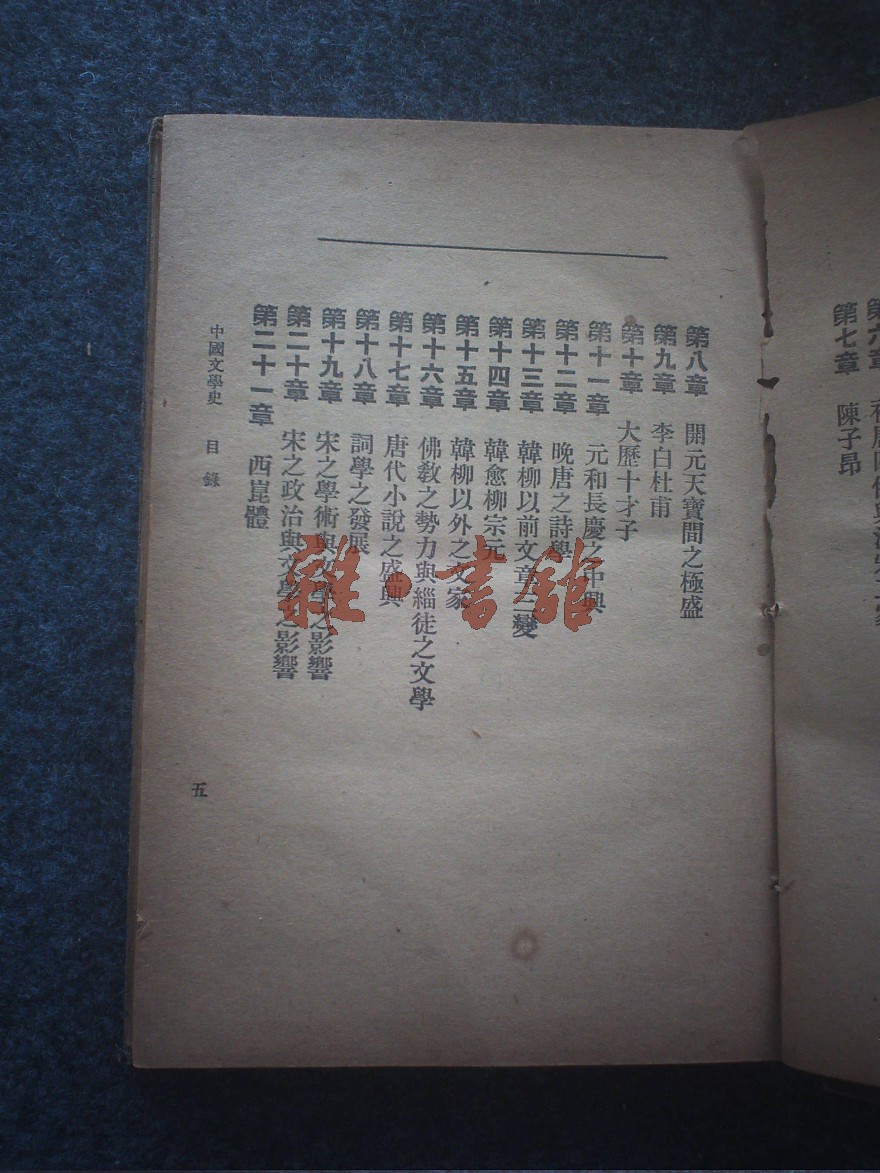 第七章　陳子昂
第八章　開元天寶間之極盛
第九章　李白杜甫
第十章　大歷十才子
第十一章　元和長慶之中興
第十二章　晚唐之詩學
第十三章　韓柳以前文章三變
第十四章　韓愈柳宗元
第十五章　韓柳以外之文家
第十六章　佛敎之勢力與緇徒之文學
第十七章　唐代小說之盛興
第十八章　詞學之發展
第十九章　宋之學術與文學之影響
第二十章　宋之政治與文學之影響
第二十一章　西崑體
中國文學史　目錄
五
雜·書館